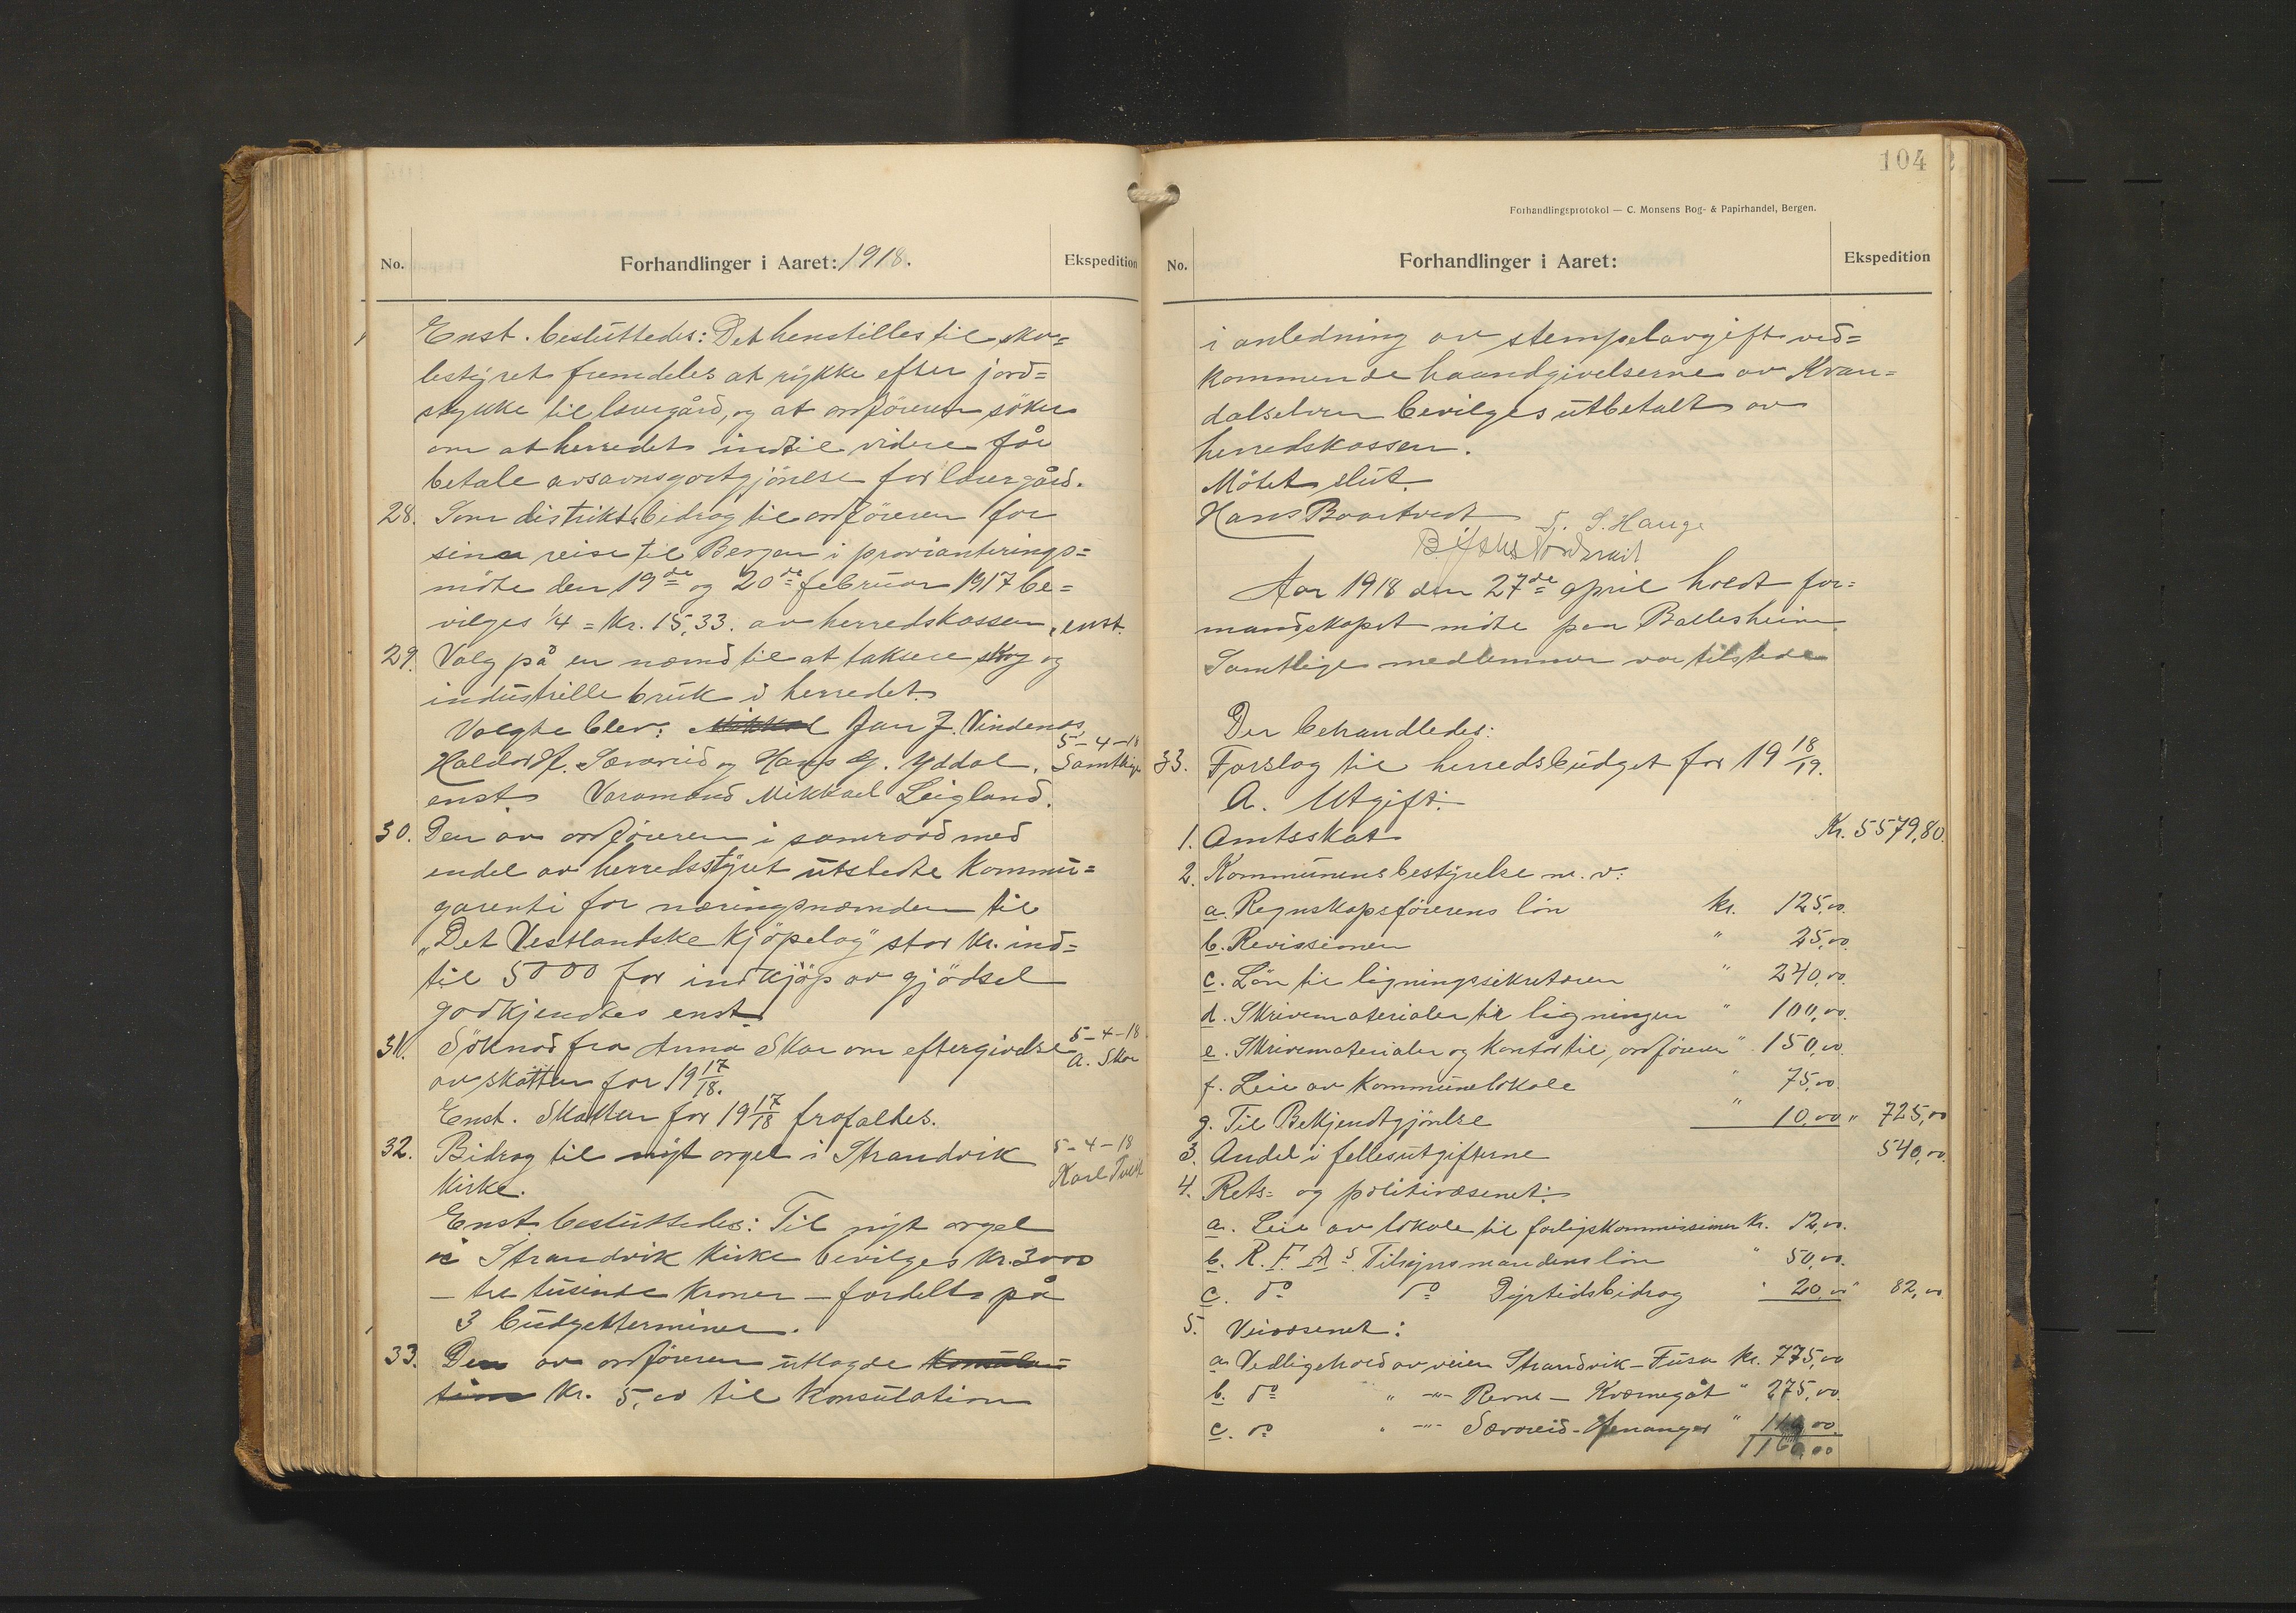 No.
Forhandlinger i Aaret: 1918.
Ekspedition
Enst. besluttedes: Det henstilles til sko=
lestyret fremdeles at rykke efter jord=
stykke til lærergård, og at ordföreren söker
om at herredet indtil videre får
betale avsavnsgodtgjörelse for lærergård.
28. Som distriktsbidrag til ordföreren for
sin reise til Bergen i provianterings=
möte den 19de og 20de februar 1917 be=
vilges 1/4 = Kr. 15,33. av herredskassen, enst.
29. Valg på en nemnd til at taksere skog og
industrielle bruk i herredet.
Valgte blev: Mikkal Jan J. Vindenes,
5-4-18
Haldor H. Sævareid og Hans G. Yddal. Samtlige
enst. Varamand Mikkael Leigland.
30. Den av ordföreren i samraad med
endel av herredsstyret utstedte kommu=
garenti for næringsnemnden til
"Det Vestlandske Kjöpelag" stor kr. ind=
til 5000 for indkjöp av gjödsel
godkjendtes enst.
31. Söknad fra Anna Skar om eftergivelse
5-4-18
A. Skar
av skatten for 1917/18.
Enst. Skatten for 1917/18 frafaldes.
32. Bidrag til nyt orgel i Strandvik
5-4-18
Karl Tveit
kirke.
Enst. besluttedes: Til nyt orgel
i Strandvik kirke bevilges kr. 3000
- tre tusinde kroner - fordelt på
3 budgetterminer.
33. Den av ordföreren utlagde konsula=
tion kr. 5,00 til konsulation
104
Forhandlingsprotokol — C. Monsens Bog- & Papirhandel, Bergen.
No.
Forhandlinger i Aaret:
Ekspedition
i anledning av stempelavgift ved=
kommende haandgivelserne av Kvan=
dalselven bevilges utbetalt av
herredskassen.
Mötet slut.
Hans Boartveit
S. Hauge
Aar 1918 den 27de april holdt for=
mandskapet möte paa Ballesheim.
Samtlige medlemmer var tilstede
Der behandledes:
33. Forslag til herredsbudget for 1918/19.
A. Utgift:
1. Amtsskat Kr. 5579,80.
2. Kommunens bestyrelse m. v:
a. Regnskapsförerens lön kr. 125,00.
b. Revissionen " 25,00.
c. Lön til ligningssekretæren " 240,00.
d. Skrivematerialer til ligningen " 100,00.
e. Skrivematerialer og kontor til ordförer " 150,00.
f. Leie av kommunelokale " 75,00.
g. Til Bekjendtgjörelse " 10,00 " 725,00
3. Andel i fellesutgifterne 540,00.
4. Rets= og politivæsenet:
a. Leie av lokale til forlikskommissionen kr. 12,00.
b. R. F. As Tilsynsmandens lön " 50,00.
c. do do Dyrtidsbidrag " 20,00 " 82,00
5. Veivæsenet:
a. Vedligehold av veien Strandvik - Fusa kr. 775,00
b. do " -"- Revne - Kværnegåt " 275,00.
c. do " -"- Sævareid - Henanger " 110,00.
1160,00